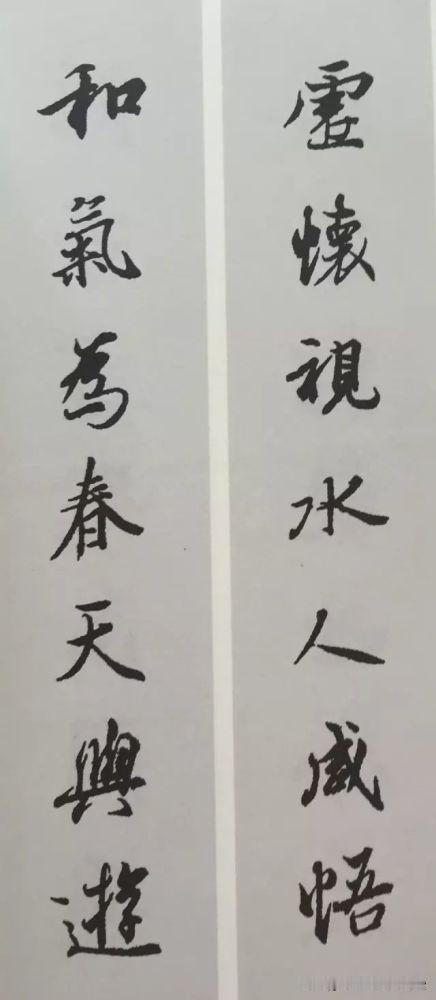 虛懷視水人咸悟
和氣為春天與遊